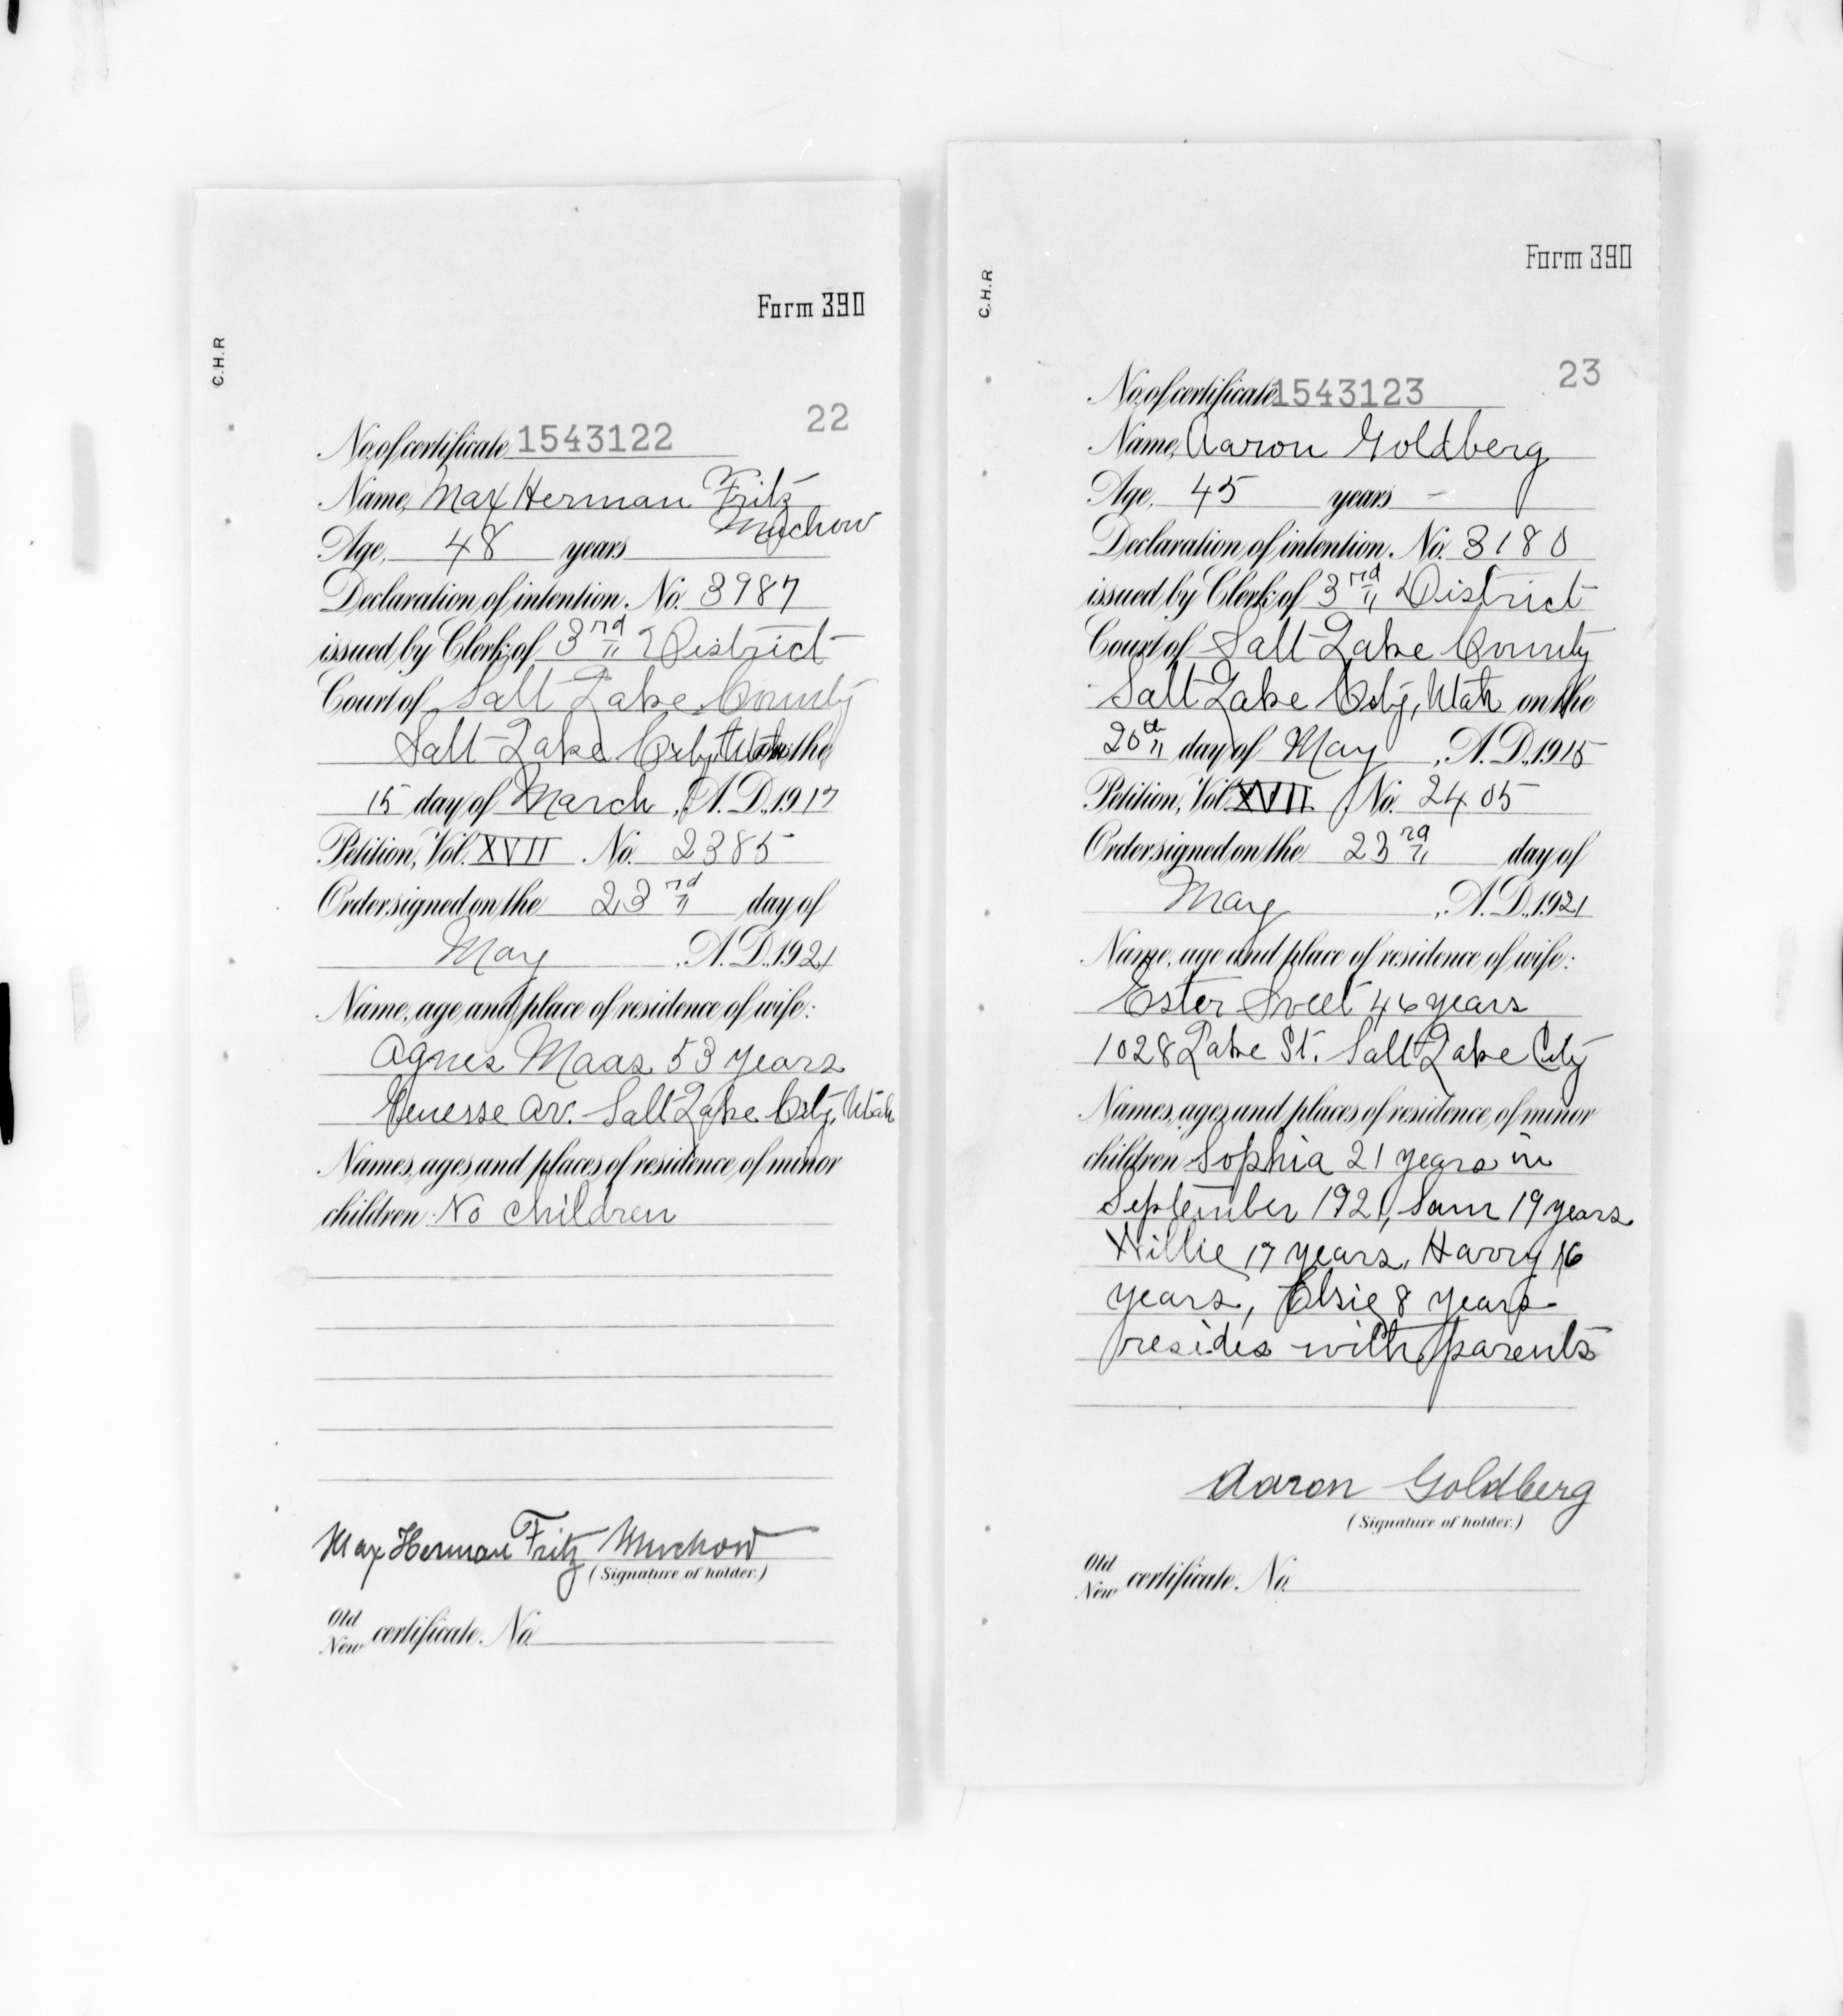 Form 390
C.H.R
22
No. of certificate, 1543122
Name, Max Herman Fritz
Muchow
Age, 48 years
Declaration of intention. No. 3987
issued by Clerk of 3rd District
Court of Salt Lake County
Salt Lake City, Utah on the
15 day of March, A.D. 1917
Petition, Vol. XVII No. 2385
Order signed on the 23rd day of
May, A.D. 1921
Name, age and place of residence of wife:
Agnes Maas 53 years
Genesse av. Salt Lake City, Utah
Names, ages and places of residence of minor
children: No children
Max Herman Fritz Muchow
(Signature of holder.)
Old
New certificate. No.
Form 390
C.H.R
23
No. of certificate, 1543123
Name, Aaron Goldberg
Age, 45 years -
Declaration of intention. No. 3180
issued by Clerk of 3rd District
Court of Salt Lake County
Salt Lake City, Utah on the
20th day of May, A.D. 1915
Petition, Vol. XVII No. 2405
Order signed on the 23rd day of
May, A.D. 1921
Name, age and place of residence of wife:
Ester 46 years
1028 Lake St. Salt Lake City
Names, ages and places of residence of minor
children Sophia 21 years in
September 1921, Sam 19 years
Willie 17 years, Harry 16
years, Elsie 8 years
resides with parents
Aaron Goldberg
(Signature of holder.)
Old
New certificate. No.